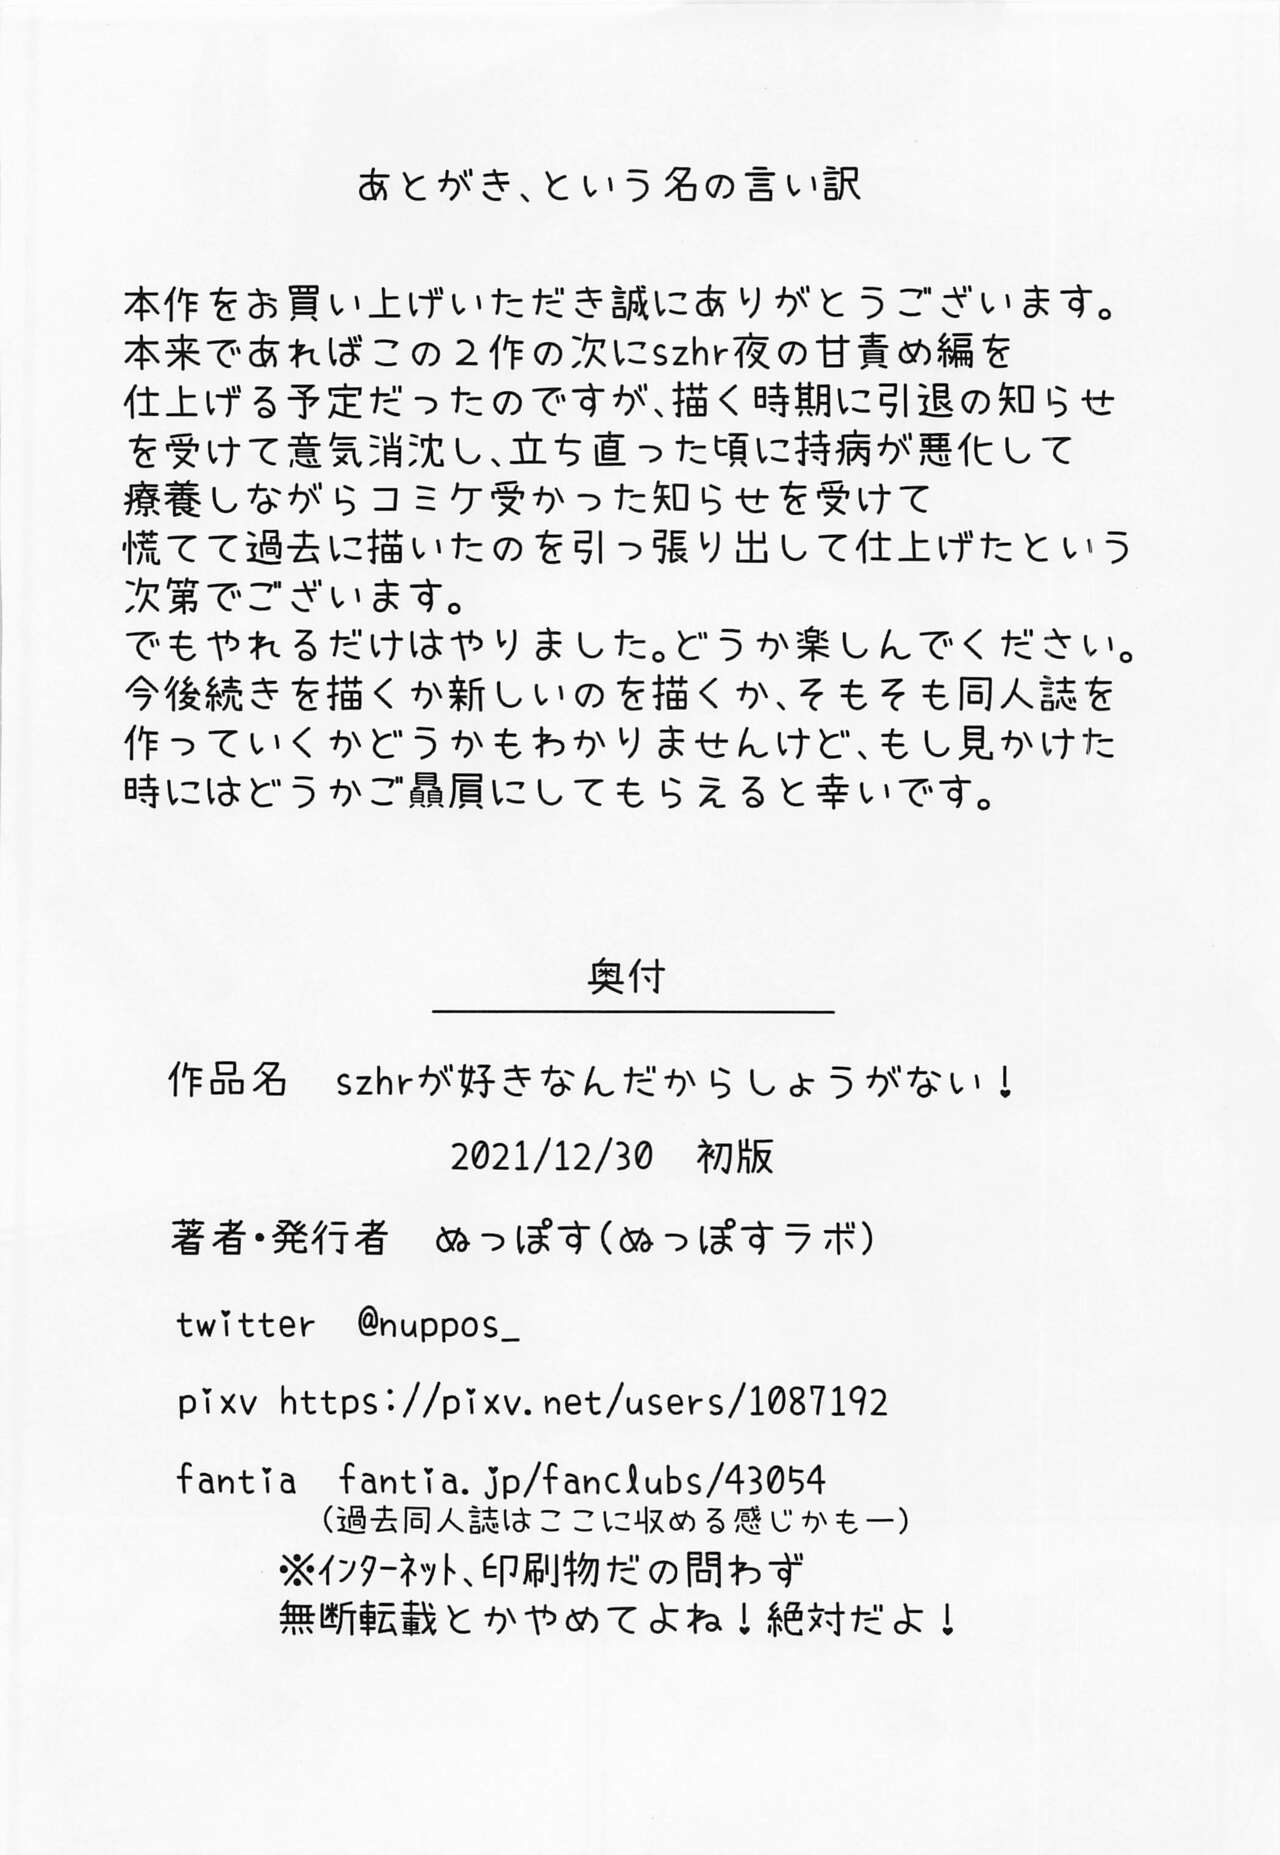 あとがき、という名の言い訳
本作をお買い上げいただき誠にありがとうございます。
本来であればこの２作の次にszhr夜の甘責め編を
仕上げる予定だったのですが、描く時期に引退の知らせ
を受けて意気消沈し、立ち直った頃に持病が悪化して
療養しながらコミケ受かった知らせを受けて
慌てて過去に描いたのを引っ張り出して仕上げたという
次第でございます。
でもやれるだけはやりました。どうか楽しんでください。
今後続きを描くか新しいのを描くか、そもそも同人誌を
作っていくかどうかもわかりませんけど、もし見かけた
時にはどうかご贔屓にしてもらえると幸いです。
奥付
作品名　szhrが好きなんだからしょうがない！
2021/12/30　初版
著者・発行者　ぬっぽす(ぬっぽすラボ)
twitter　@nuppos_
pixv https://pixv.net/users/1087192
fantia　fantia.jp/fanclubs/43054
(過去同人誌はここに収める感じかもー)
※ｲﾝﾀｰﾈｯﾄ、印刷物だの問わず
無断転載とかやめてよね！絶対だよ！